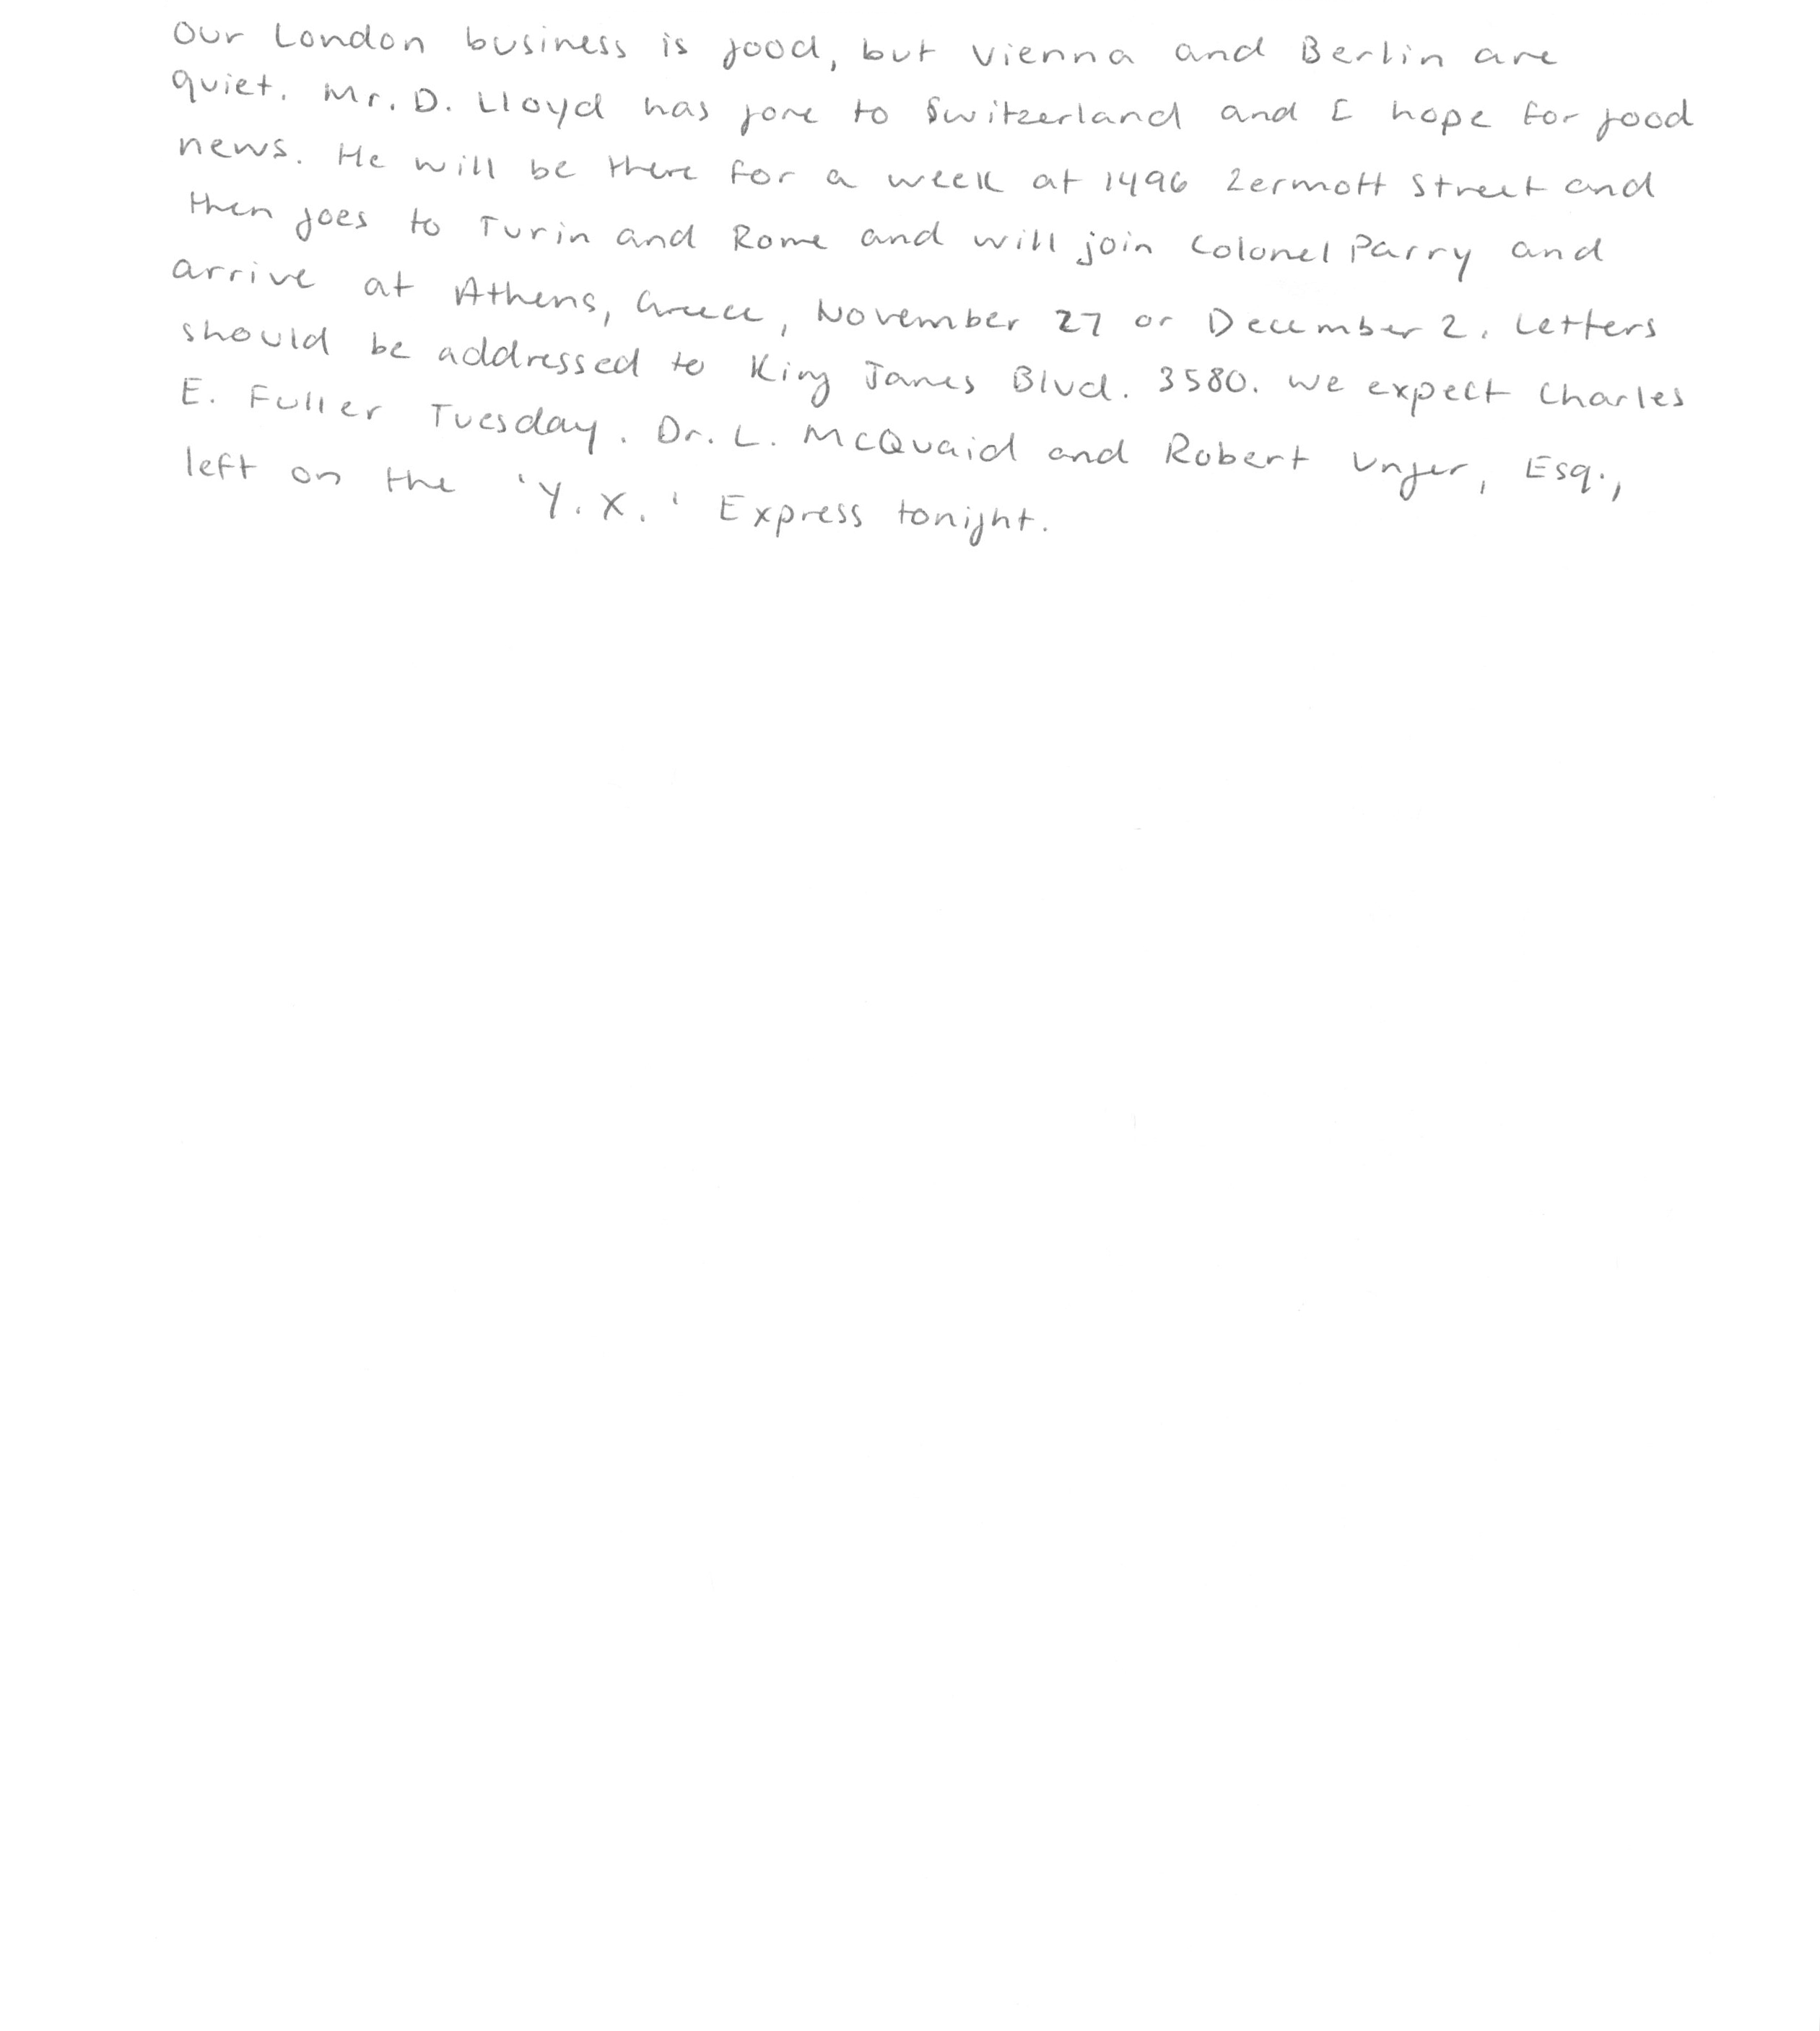 Our London business is good, but Vienna and Berlin are
quiet. Mr. D. Lloyd has gone to Switzerland and I hope for good
news. He will be there for a week at 1496 Zermott Street and
then goes to Turin and Rome and will join Colonel Parry and
arrive at Athens, Greece, November 27 or December 2. Letters
should be addressed to King James Blvd. 3580. We expect Charles
E. Fuller Tuesday. Dr. L. McQuaid and Robert Unger, Esq.,
left on the 'Y.X.' Express tonight.